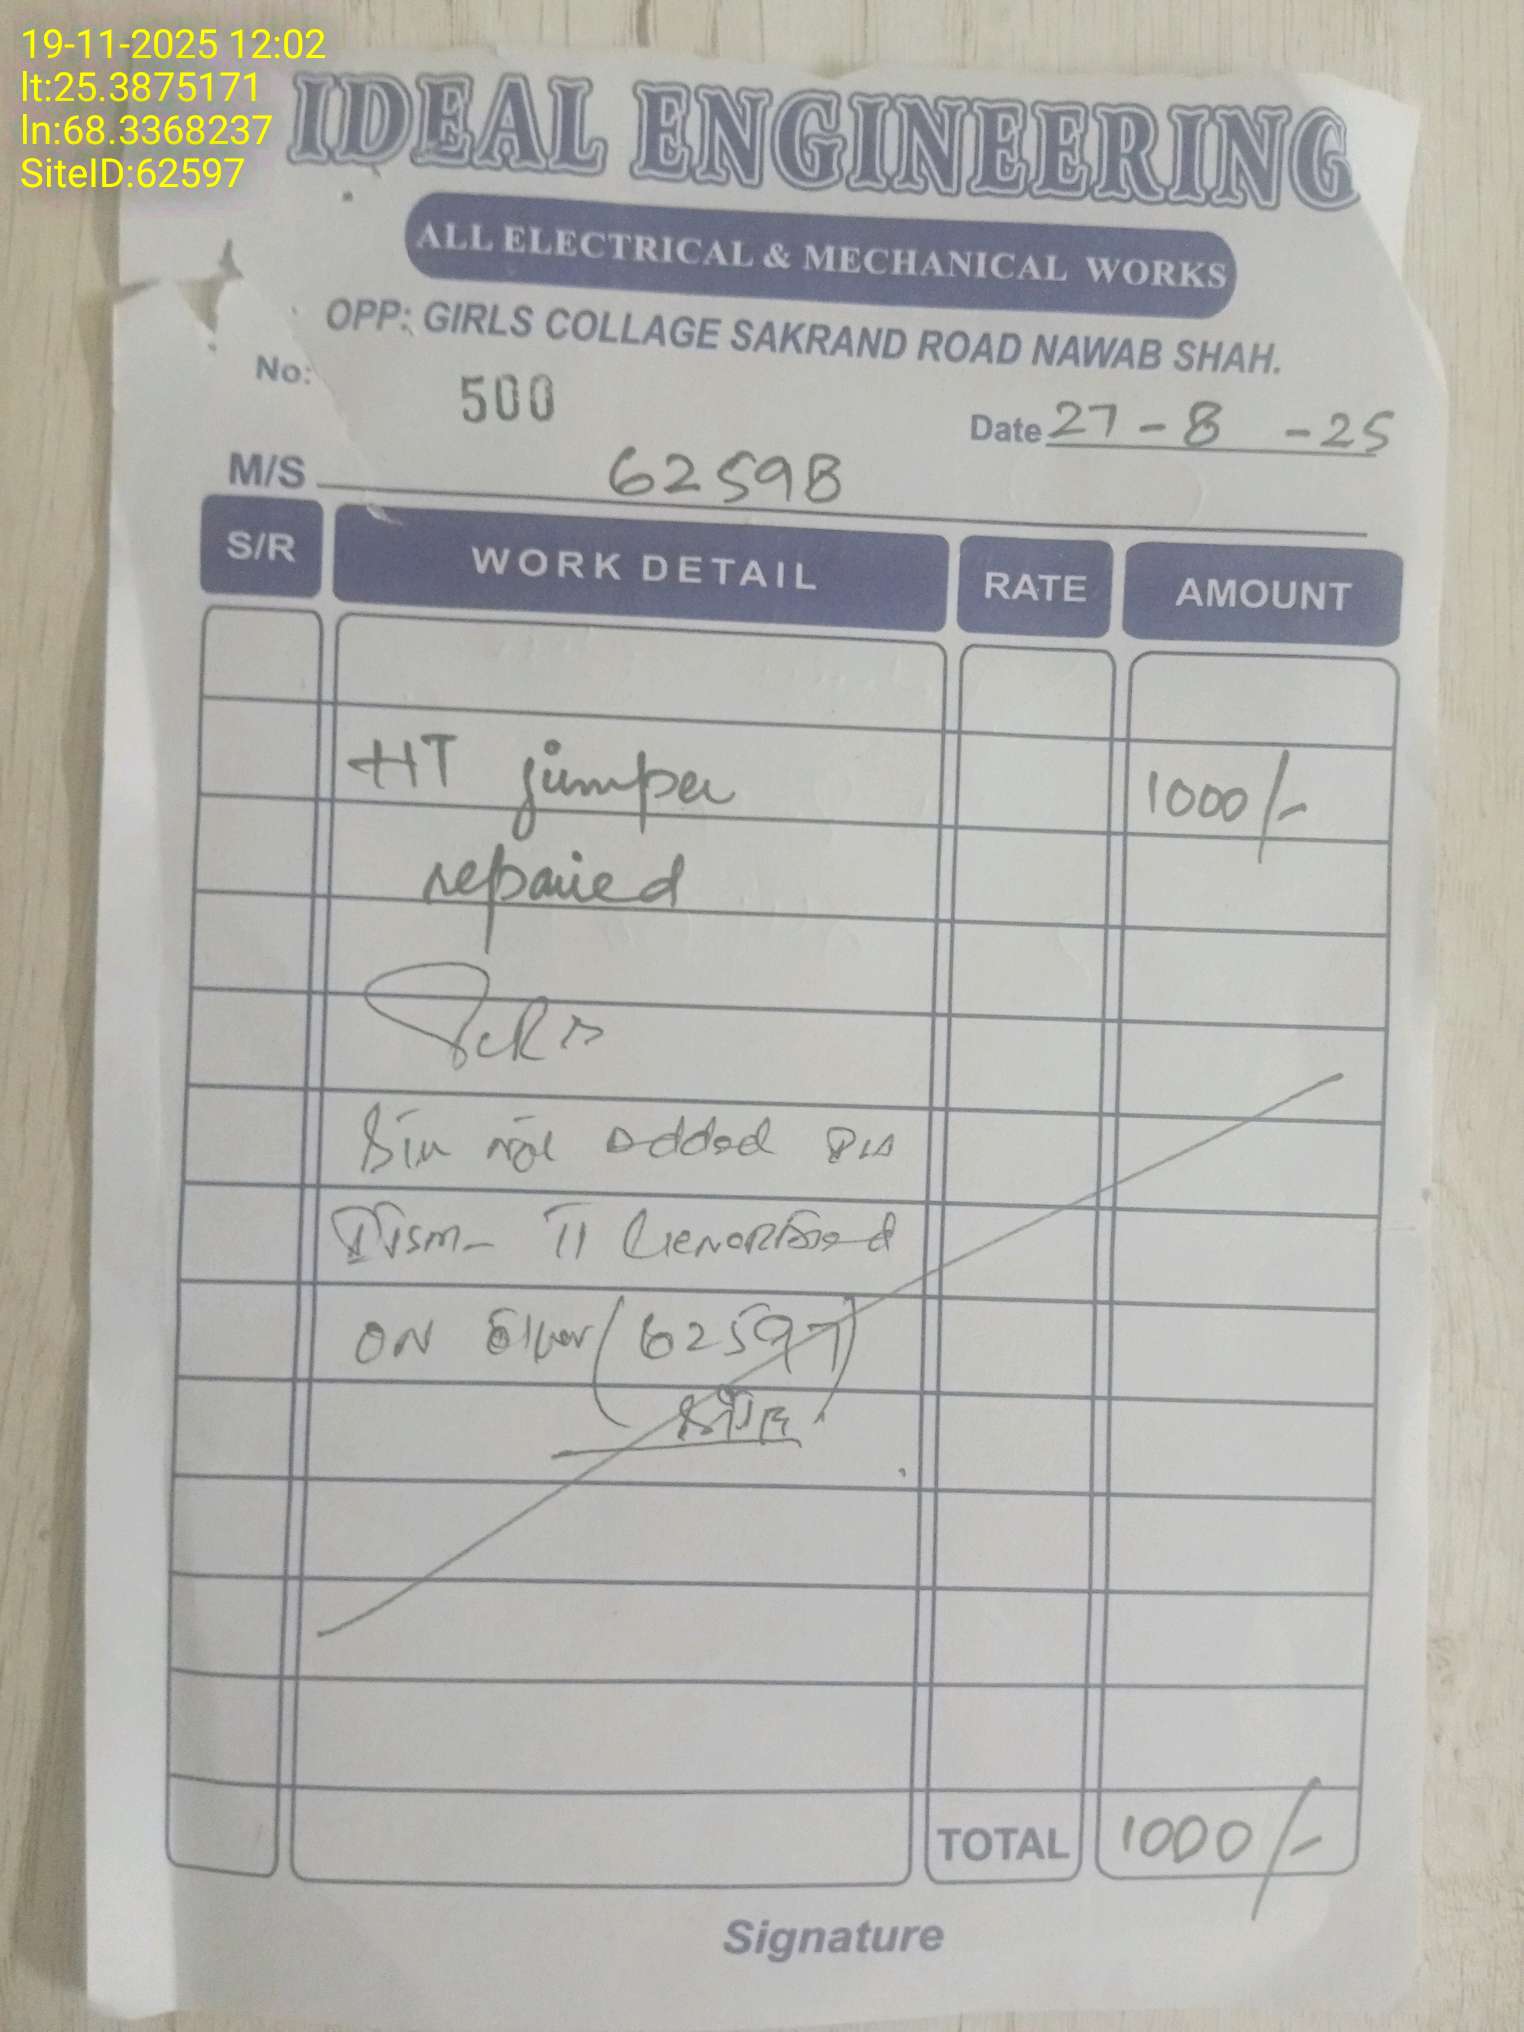 19-11-2025 12:02
lt:25.3875171
ln:68.3368237
SiteID:62597
IDEAL ENGINEERING
ALL ELECTRICAL & MECHANICAL WORKS
OPP: GIRLS COLLAGE SAKRAND ROAD NAWAB SHAH.
No: 500
Date 27-8-25
M/S 62598
S/R WORK DETAIL RATE AMOUNT
HT jumper 1000/-
repaired
Sir not added
II Generated
ON (62597)
TOTAL 1000/-
Signature